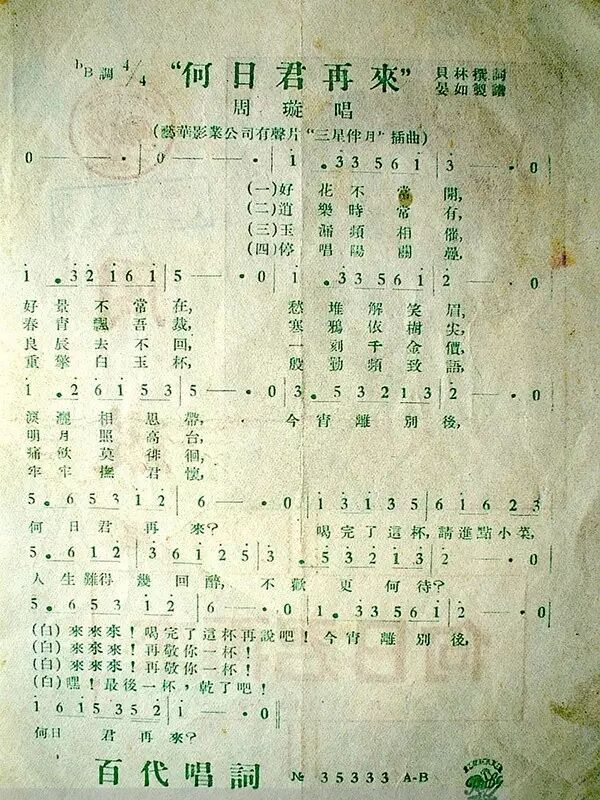 bB調 4/4 “何日君再來” 貝林撰詞
晏如製譜
周璇唱
(藝華影業公司有聲片“三星伴月”插曲)
0 — · 0 — · 1 .33561 3 — · 0
(一)好花不常開,
(二)道樂時常有,
(三)玉漏頻相催,
(四)停唱陽關疊,
1 .32161 5 — · 0 1 .33561 2 — · 0
好景不常在, 愁堆解笑眉,
春宵飄吾裁, 寒鴉依樹尖,
良辰去不回, 一刻千金價,
重擎白玉杯, 殷勤頻致語,
1 .26153 5 — · 0 3 .53213 2 — · 0
淚灑相思帶, 今宵離別後,
明月照高台,
痛飲莫徘徊,
牢牢撫君懷,
5 .65312 6 — · 0 13135 61623
何日君再來? 喝完了這杯,請進點小菜,
5 .612 361253 3 .53213 2 — · 0
人生難得幾回醉, 不歡更何待?
5 .653 12 6 — · 0 1 .33561 2 — · 0
(白)來來來!喝完了這杯再說吧!今宵離別後,
(白)來來來!再敬你一杯!
(白)來來來!再敬你一杯!
(白)嘿!最後一杯,乾了吧!
1615352 1 — · 0
何日君再來?
百代唱詞 № 35333 A-B